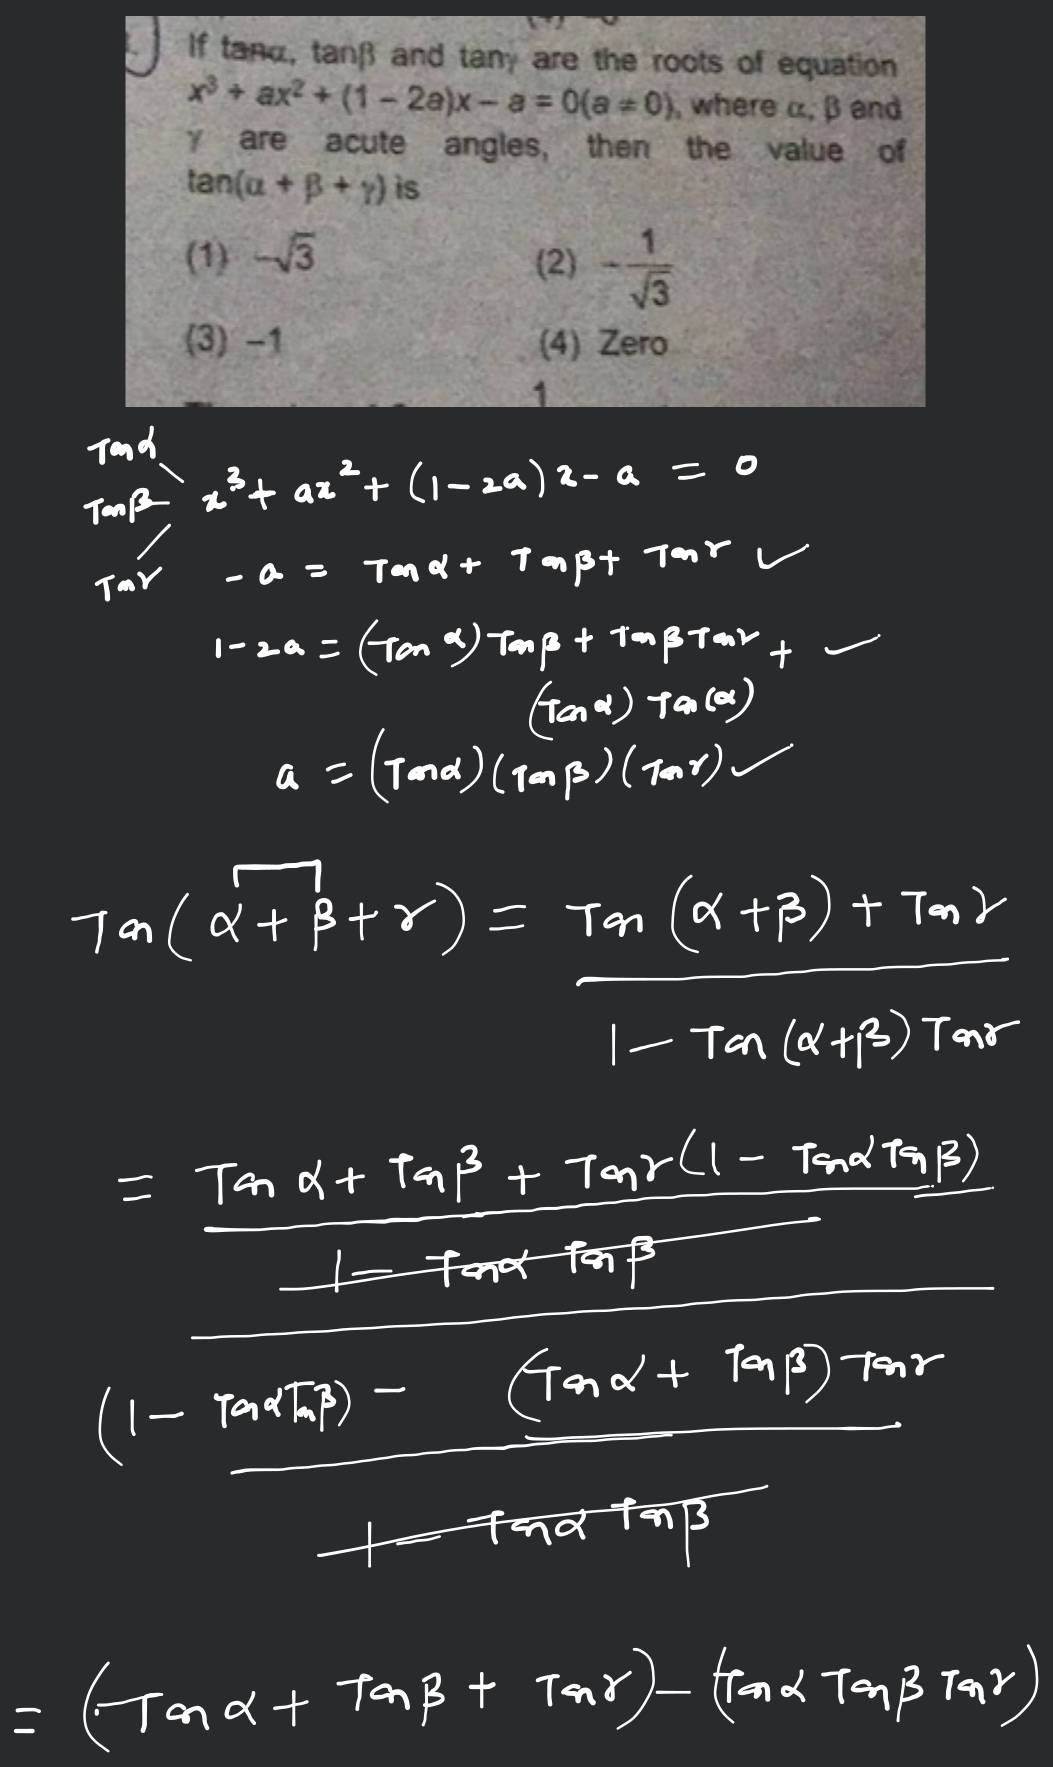 If tanα, tanβ and tanγ are the roots of equation
x³ + ax² + (1 – 2a)x – a = 0(a ≠ 0), where α, β and
γ are acute angles, then the value of
tan(α + β + γ) is
(1) –√3 (2) –1/√3
(3) –1 (4) Zero
1
Tanα
Tanβ x³ + ax² + (1–2a)x – a = 0
Tanγ –a = Tanα + Tanβ + Tanγ ✓
1–2a = (Tanα)Tanβ + TanβTanγ + ✓
(Tanα) Tan(α)
a = (Tanα)(Tanβ)(Tanγ) ✓
Tan(α + β + γ) = Tan(α + β) + Tanγ
1 – Tan(α+β) Tanγ
= Tanα + Tanβ + Tanγ(1 – Tanα Tanβ)
1 – Tanα Tanβ
(1 – TanαTanβ) – (Tanα + Tanβ) Tanγ
1 – Tanα Tanβ
= (Tanα + Tanβ + Tanγ) – (Tanα Tanβ Tanγ)